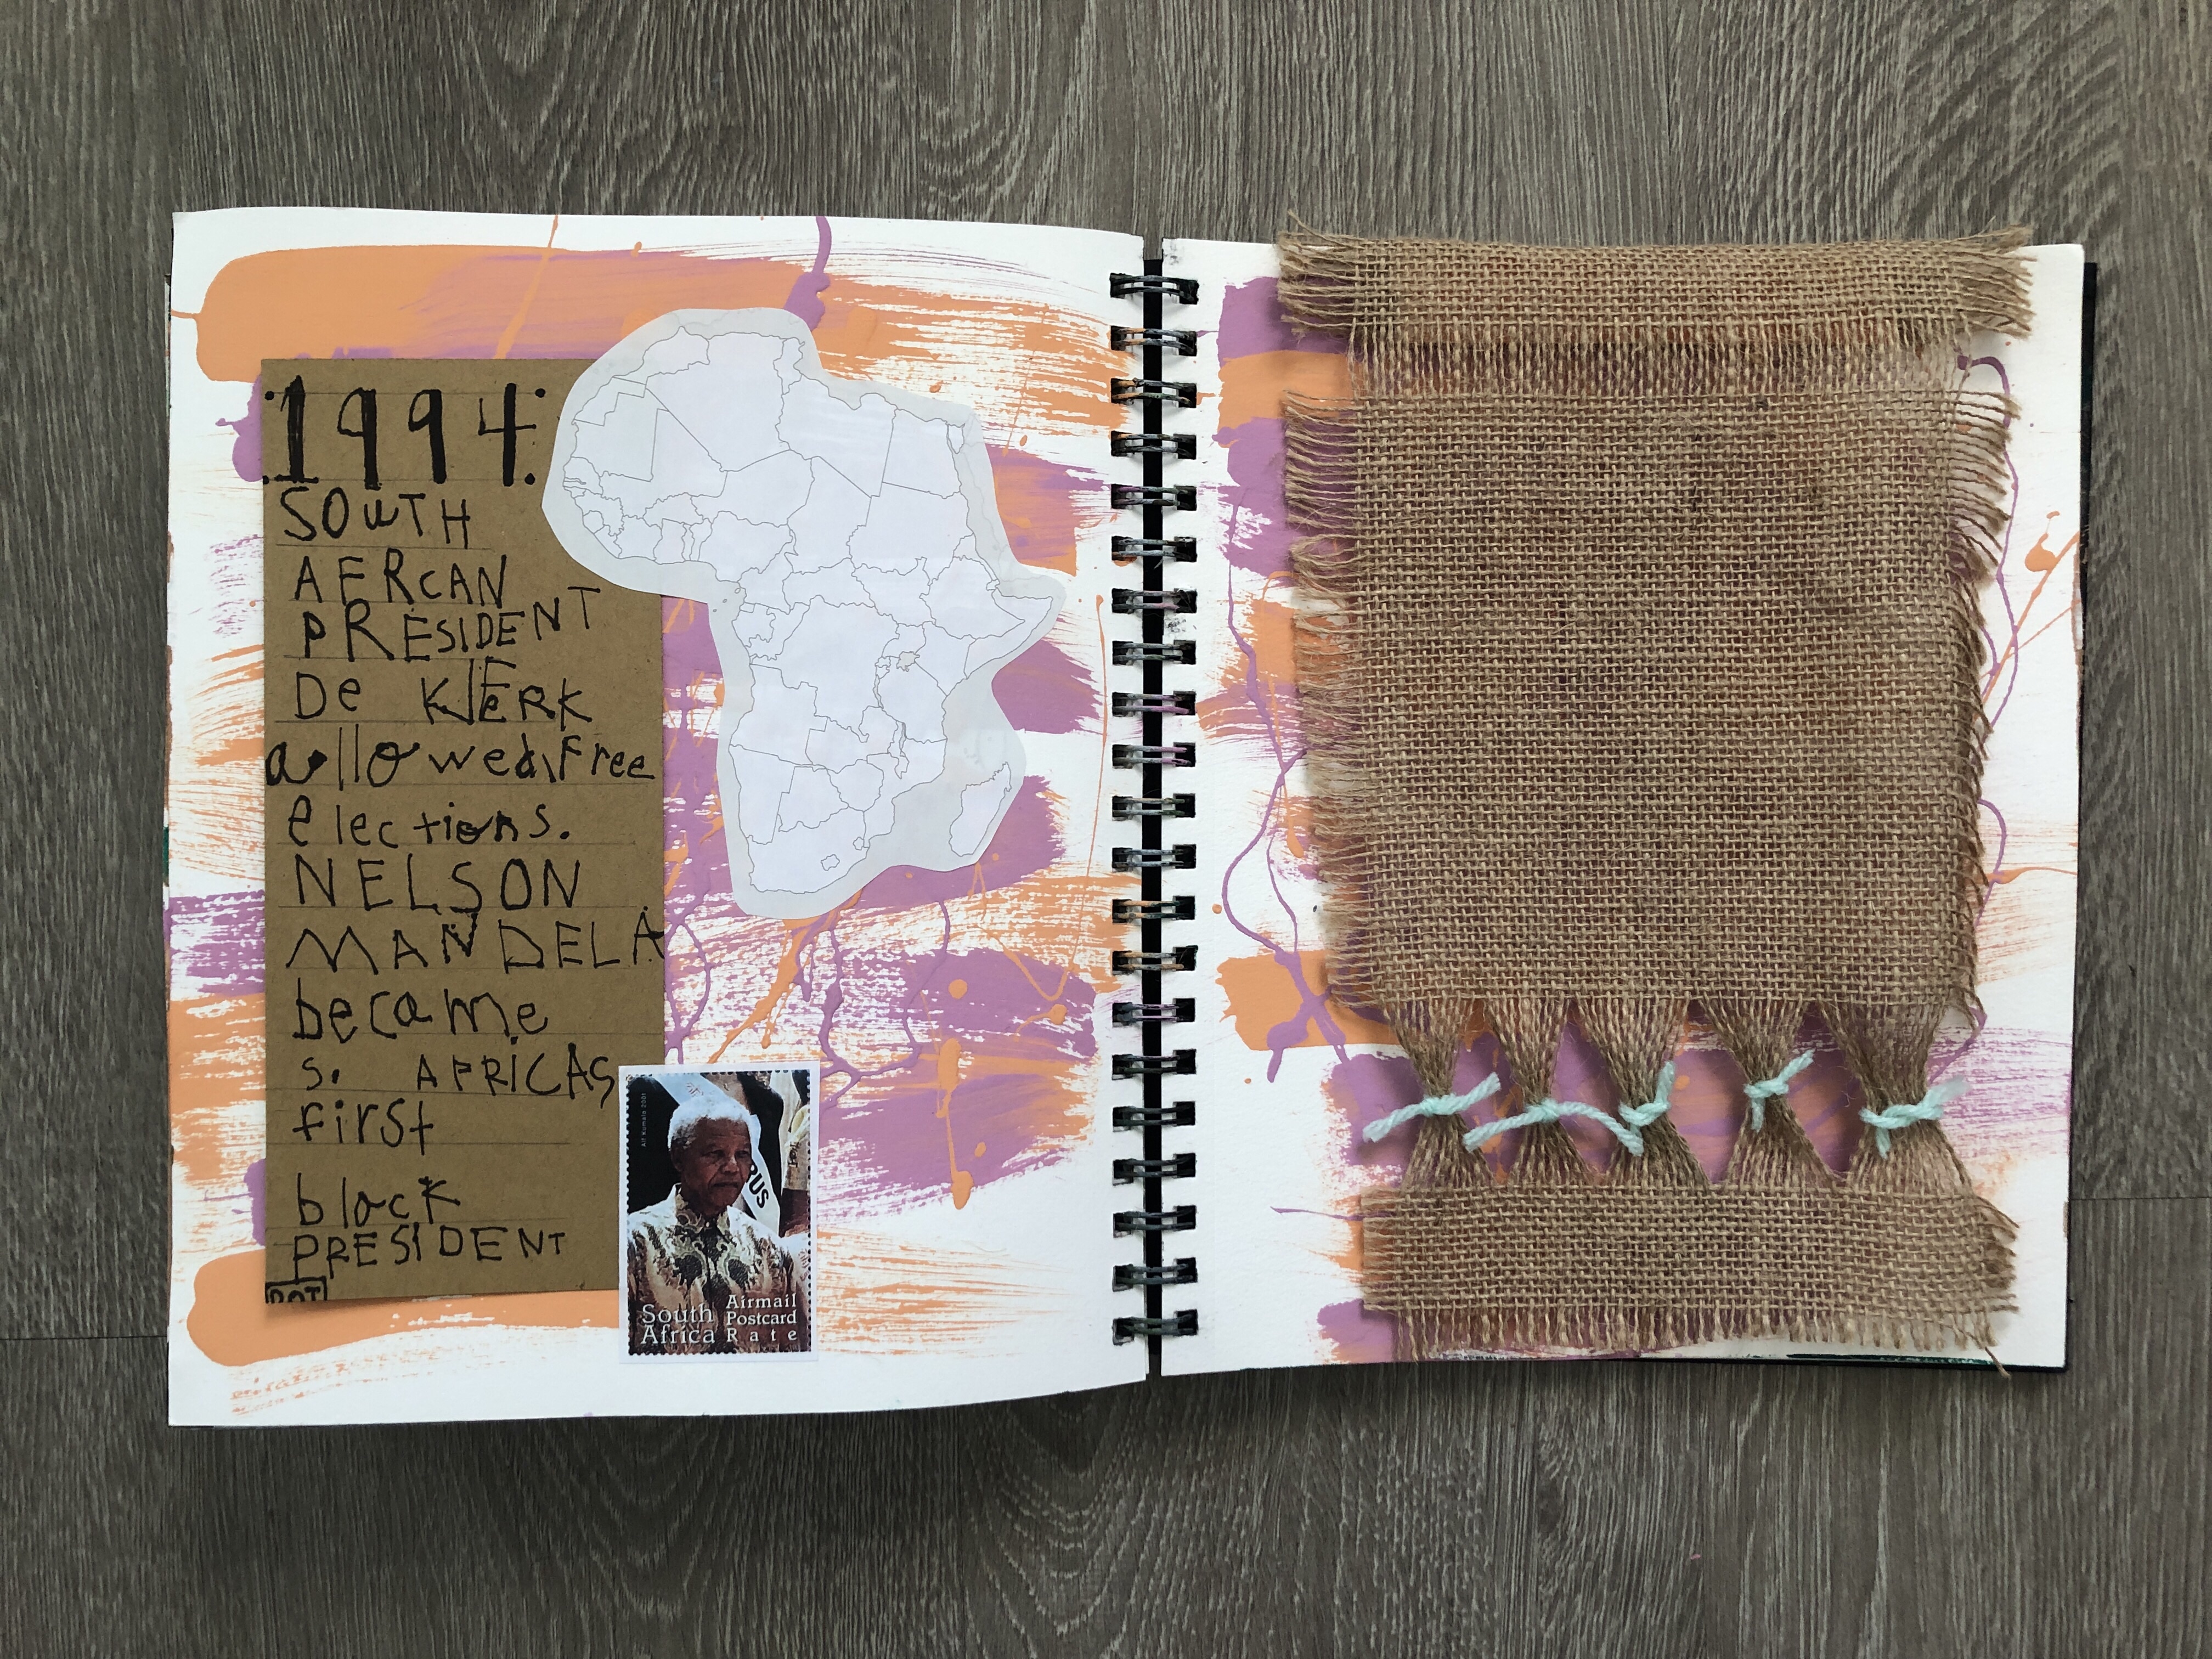 1994
SOUTH
AFRCAN
PRESIDENT
De KLERK
allowed free
elections.
NELSON
MANDELA
became
S. AFRICAS
first
black
PRESIDENT
South Africa
Airmail
Postcard
Rate